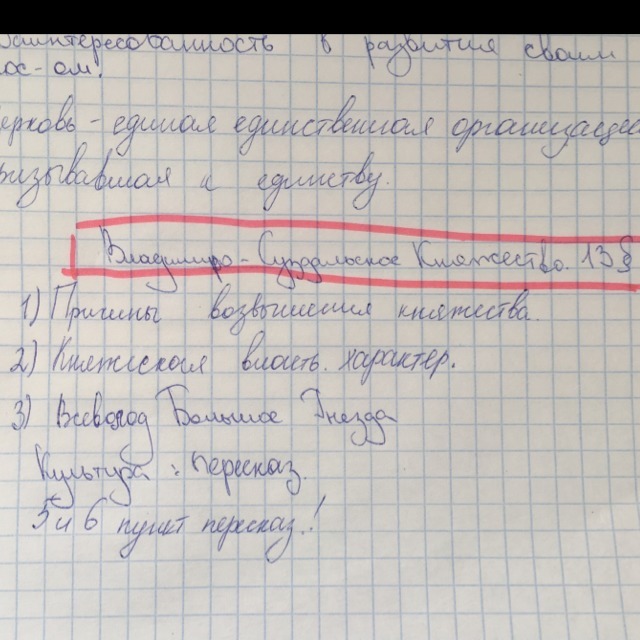 заинтересованность в развития своим
гос-ом.
церковь - единая единственная организация
призывавшая к единству.
Владимиро - Суздальское Княжество. 13 §
1) Причины возвышения княжества.
2) Княжеская власть. характер.
3) Всеволод Большое Гнездо
Культура: пересказ.
5 и 6 пункт пересказ!